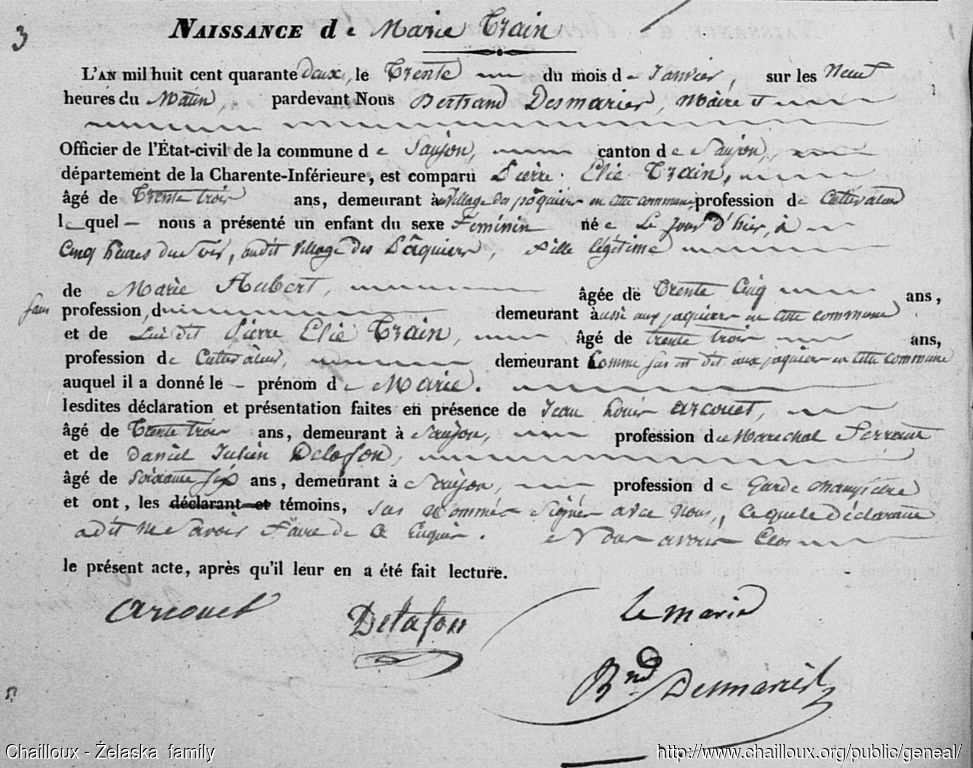 3
NAISSANCE de Marie Train
L'AN mil huit cent quarante Deux, le Trente du mois de Janvier, sur les Neuf
heures du Matin, pardevant Nous Bertrand Desmarier, Maire et
Officier de l'État-civil de la commune de Saujon, canton de Saujon,
département de la Charente-Inférieure, est comparu Pierre Elie Train,
âgé de Trente trois ans, demeurant au village des pâquiers en cette commune profession de Cultivateur
lequel nous a présenté un enfant du sexe Féminin né Le Jour d'hier, à
Cinq heures du soir, audit Village des Pâquiers, fille légitime
de Marie Hubert, âgée de Trente Cinq ans,
sans profession, d demeurant aussi aux paquiers en cette commune
et de Lui dit Pierre Elie Train, âgé de trente trois ans,
profession de Cultivateur, demeurant Comme sus est dit aux paquiers en cette commune
auquel il a donné le prénom de Marie.
lesdites déclaration et présentation faites en présence de Jean Louis Arcouet,
âgé de Trente trois ans, demeurant à Saujon, profession de Marechal Ferrant
et de Daniel Julien Delafon,
âgé de soixante six ans, demeurant à Saujon, profession de Garde champêtre
et ont, les déclarant et témoins, sus nommés Signés avec Nous, Ce que le Déclarant
a dit ne savoir Faire de Ce Enquis. et Nous avons Clos
le présent acte, après qu'il leur en a été fait lecture.
Arcouet
Delafon
le maire
Bnd Desmarier
Chailloux - Żelaska family
http://www.chailloux.org/public/geneal/